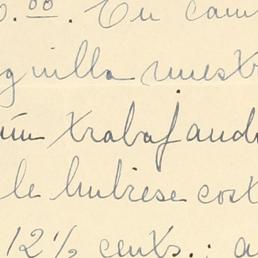 0.00. En cam
quilla nuestr
ún trabajando
le hubiese cost
12½ cents.; a